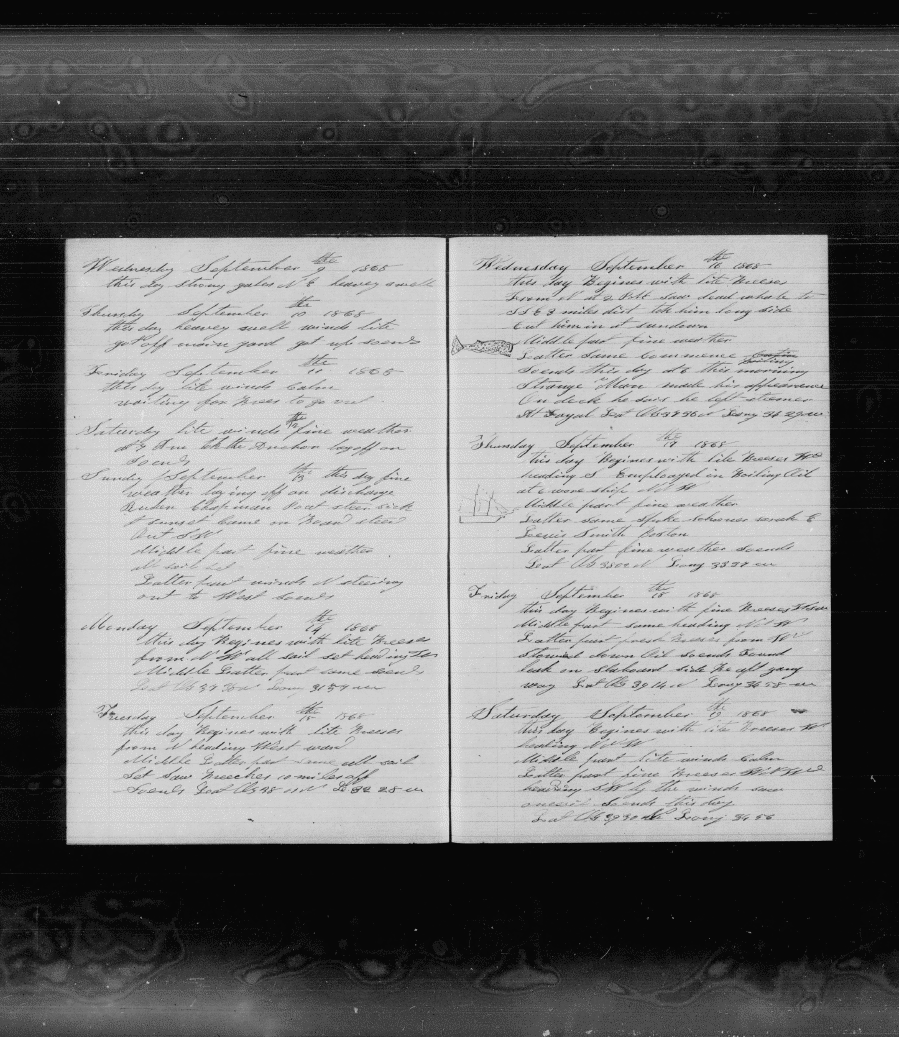 Wednesday September 9 the 1868
this dy strong gales N E heavey swell
Thursdy September 10 the 1868
this day heavey swell winds lite
got off main yard got up soends
Friday September 11 the 1868
this dy lite winds Calm
waiting for Breese to go out
Saturday lite winds 12 the fine weather
at the Anchor lay off on
soends
Sundy September 13 the this dy fine
weather laying off on discharge
Ruben Chapman Boat steer sick
at sunset Came on Board steerd
Out SSW
Middle part fine weather
all sail set
Latter part winds N steering
out to West soends
Monday September 14 the 1868
this dy Begines with lite Breeses
from N W all sail set heading
Middle Latter part same soends
Lat Ob Long 31 57 m
Tuesday September 15 the 1868
this day Begines with lite Breeses
from N heading West ward
Middle Latter part same all sail
Set Saw Breeches 10 miles off
Soends Lat Ob 38 Lo 32 28 m
Wednesday September 16 the 1868
this day Begines with lite Breeses
From N at 2 P M saw dead whale to
SSE 3 miles dist tok him long side
Cut him in at sundown
Middle part fine weather
Latter same Commence Cuttin
Boiling
Soends this day at 6 this morning
Strange Man made his appearence
On deck he sais he left steamer
At Fayal Lat Ob 37 36 N Long 34 29 m
Thursday September 17 the 1868
this day Begines with lite Breeses
heading S Employed in Boiling Oil
at 6 wore ship N W
Middle part fine weather
Latter same spoke schoner sarah E
Lewis Smith Boston
Latter part fine weather soends
Lat Ob N Long m
Friday September 18 the 1868
this day Begines with fine Breeses
Middle part same heading N W
Latter part fresh Breeses from W
Stowed down Oil soends Found
leak on staboard side the aft gang
way Lat Ob 39 14 N Long 34 58 m
Saturday September 19 the 1868
this day Begines with lite Breeses W
heading N W
Middle part lite winds Calm
Latter part fine Breeses
heading SW by the winds saw
soends this day
Lat Ob 39 30 Long 34 56